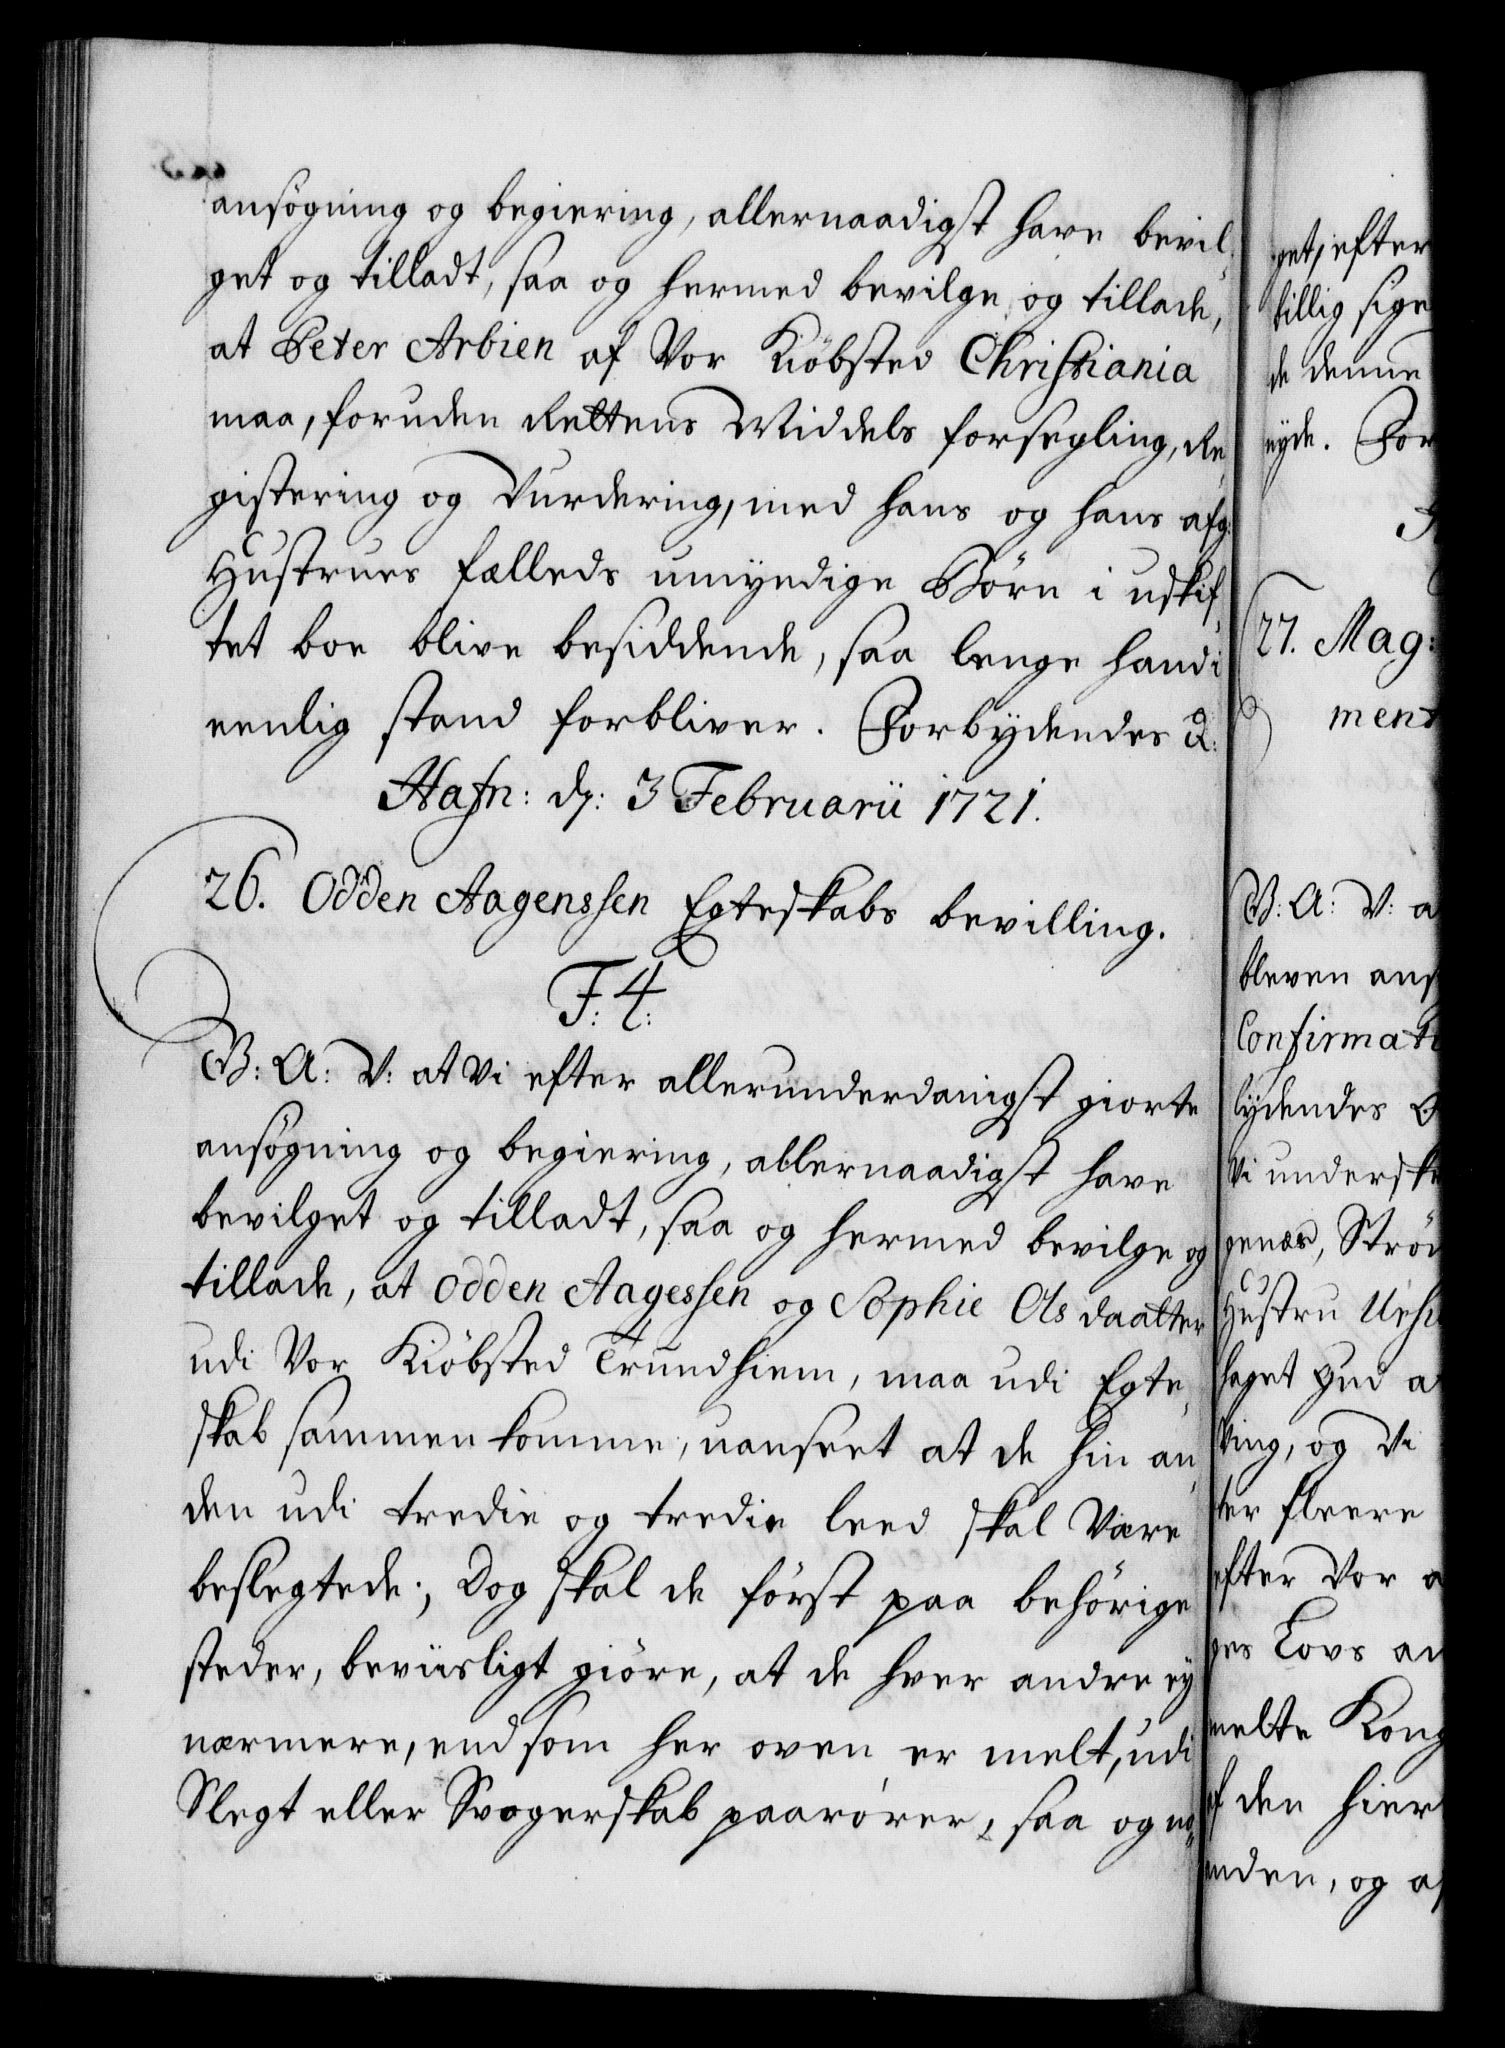 ansögning og begiering, allernaadigst have bevil-
get og tilladt, saa og hermed bevilge og tillade,
at Peter Arbien af Vor Kiöbsted Christiania
maa, foruden Rettens Middels forsegling, Re-
gistering og Vurdering, med hans og hans afg:
Hustrues fælleds umyndige Börn i uskif-
tet boe blive besiddende, saa lenge hand i
eenlig stand forbliver. Forbydendes &:
Hafn: d: 3 Februarii 1721.
26. Odden Aagenssen Egteskabs bevilling.
F: 4:
G: A: V: at Vi efter allerunderdanigst giorte
ansögning og begiering, allernaadigst have
bevilget og tilladt, saa og hermed bevilge og
tillade, at Odden Aagessen og Sophie Ols daatter
udi Vor Kiöbsted Trundhiem, maa udi Egte-
skab sammen komme, uanseet at de hin an-
den udi tredie og tredie leed skal Være
beslegtede; Dog skal de först paa behörige
steder, beviisligt giöre, at de hver andre ey
nærmere, end som her oven er melt, udi
Slegt eller Svogerskab paarörer, saa og no-
get, efter
billig sige
de denne
nyde. For
27. Mag:
ment
G: A: V: a
bleven ans
Confirmati
lydendes
Vi underskr
genæs, Strö
Hustru
haget Gud a
Ving, og Vi
ter fleere
efter Vor a
ges Lovs an
melte Kong
af den hier
anden, og af